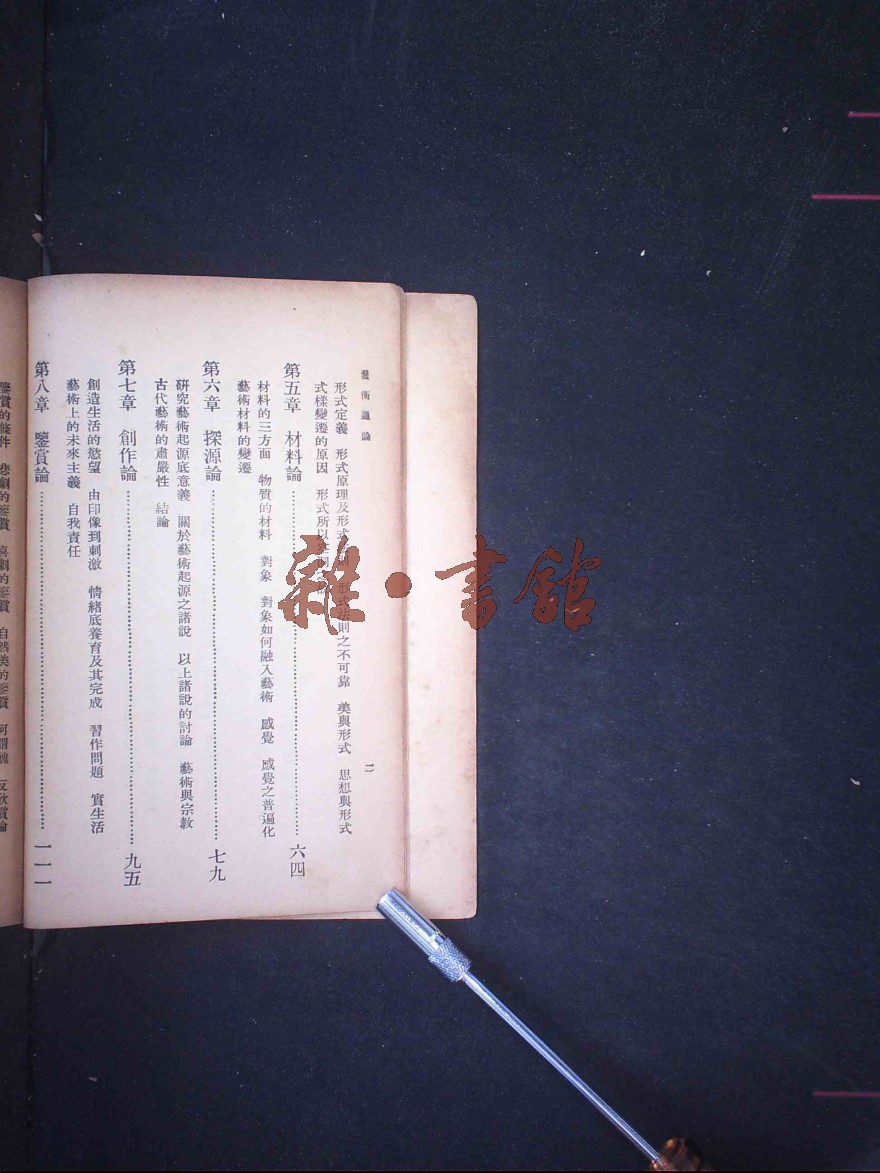 藝術通論
二
形式定義 形式原理及形式法則 形式法則之不可靠 美與形式 思想與形式
式樣變遷的原因 形式所以
第五章 材料論 六四
材料的三方面 物質的材料 對象 對象如何融入藝術 感覺 感覺之普遍化
藝術材料的變遷
第六章 探源論 七九
研究藝術起源底意義 關於藝術起源之諸說 以上諸說的討論 藝術與宗教
古代藝術的肅嚴性 結論
第七章 創作論 九五
創造生活的慾望 由印像到刺激 情緒底養育及其完成 習作問題 實生活
藝術上的未來主義 自我責任
第八章 鑒賞論 一一一
鑒賞的條件 悲劇的鑒賞 喜劇的鑒賞 自然美的鑒賞 何謂醜
雜·書館